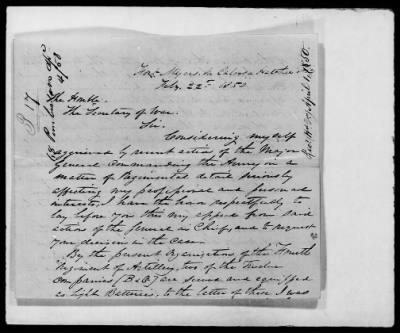 Fort Myers, on Caloosa Hatchee.
Feby. 22d. 1850
The Honble.
The Secretary of War.
Sir.
Considering myself
aggrieved by recent action of the Major
General Commanding the Army in a
matter of Regimental detail seriously
affecting my professional and personal
interests, I have the honor respectfully to
lay before you this my appeal from said
action of the General in Chief, and to request
your decision in the Case.
By the present Organization of the Fourth
Regiment of Artillery, two of the Twelve
Companies (B & G) are served and equipped
as Light Batteries; to the letter of these I was
P 17
Recd. April 1, 1850.